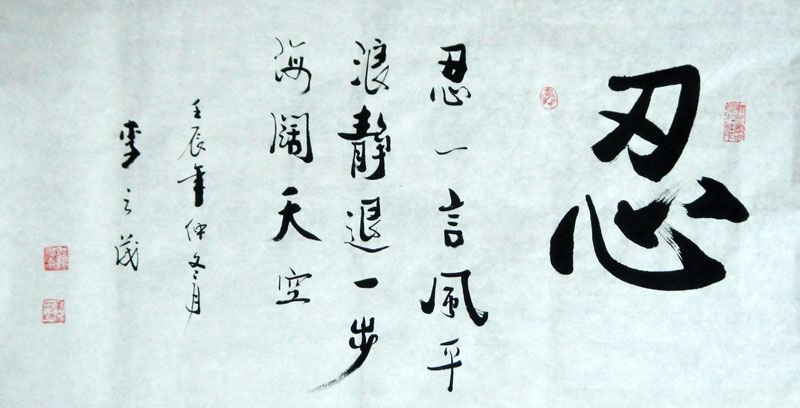 忍
忍一言風平
浪靜退一步
海闊天空
壬辰年仲冬月
李之茂